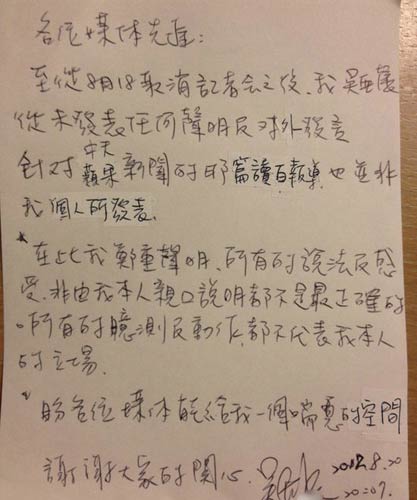 各位媒体先進:
至從8月18取消記者會之後,我
從未發表任何聲明及對外發言
中天
針對蘋果新聞的那篇讀白報導,也並非
我個人所發表.
*在此我鄭重聲明,所有的說法及感
受,非由我本人親口說明都不是最正確的
。所有的臆測及動作,都不代表我本人
的立場.
*盼各位媒体能給我一個喘息的空間
謝謝大家的關心. 2012.8.20
20:07.